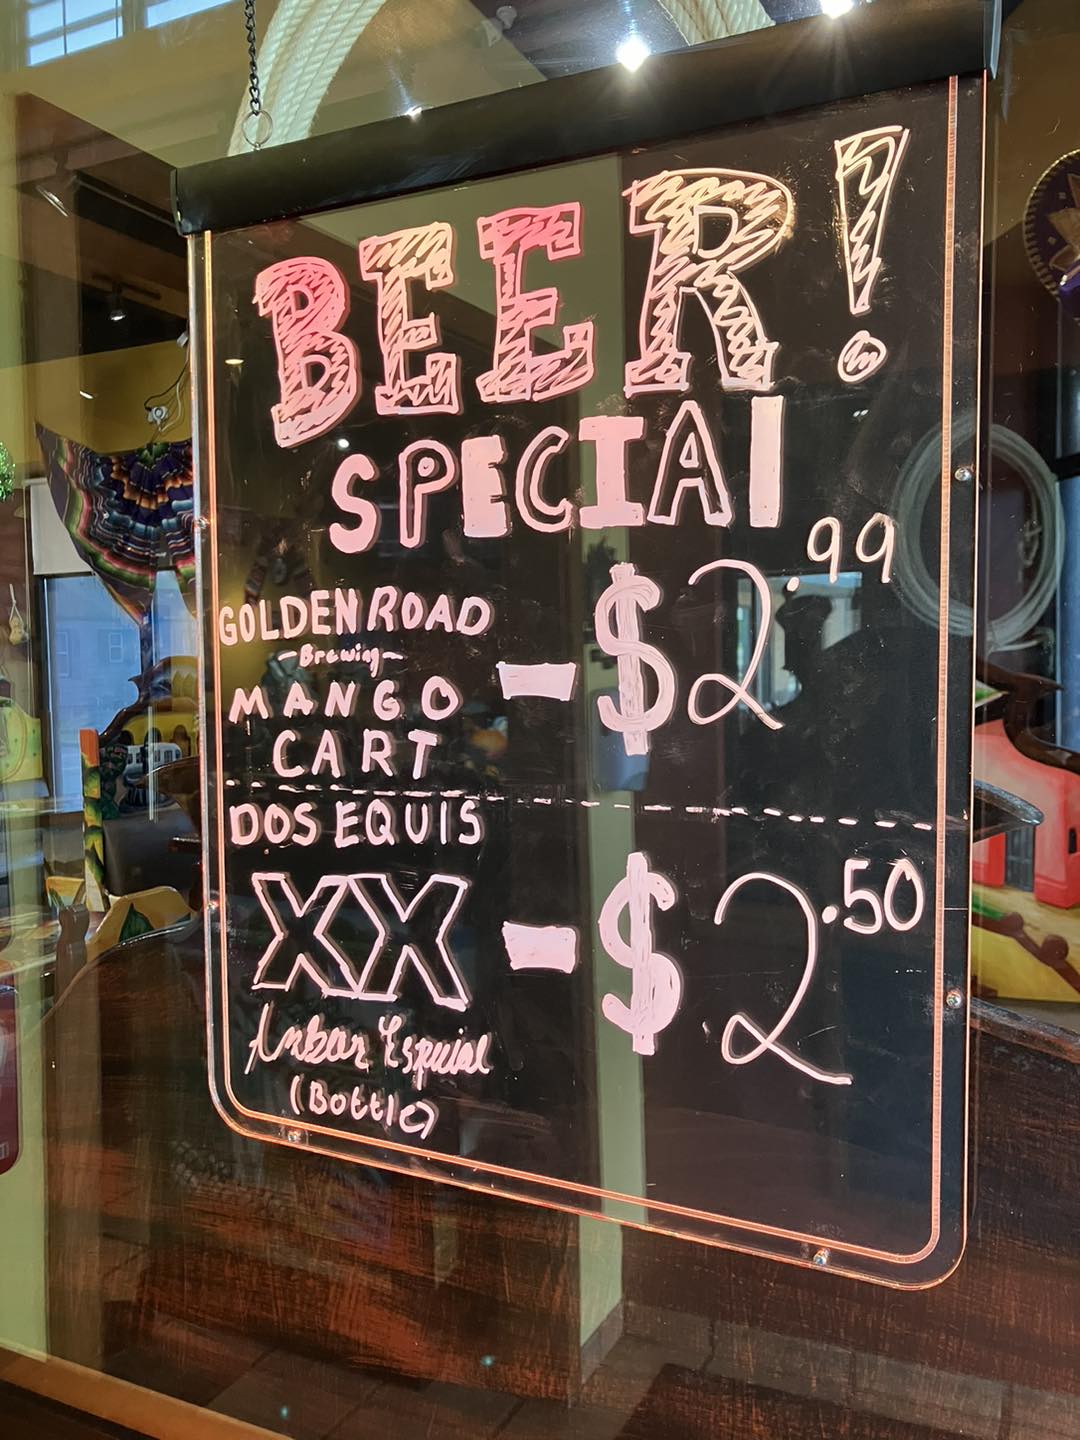 BEER!
SPECIAl
GOLDEN ROAD
-Brewing-
MANGO
CART
- $2.99
DOS EQUIS
XX - $2.50
Ambar Especial
(Bottle)